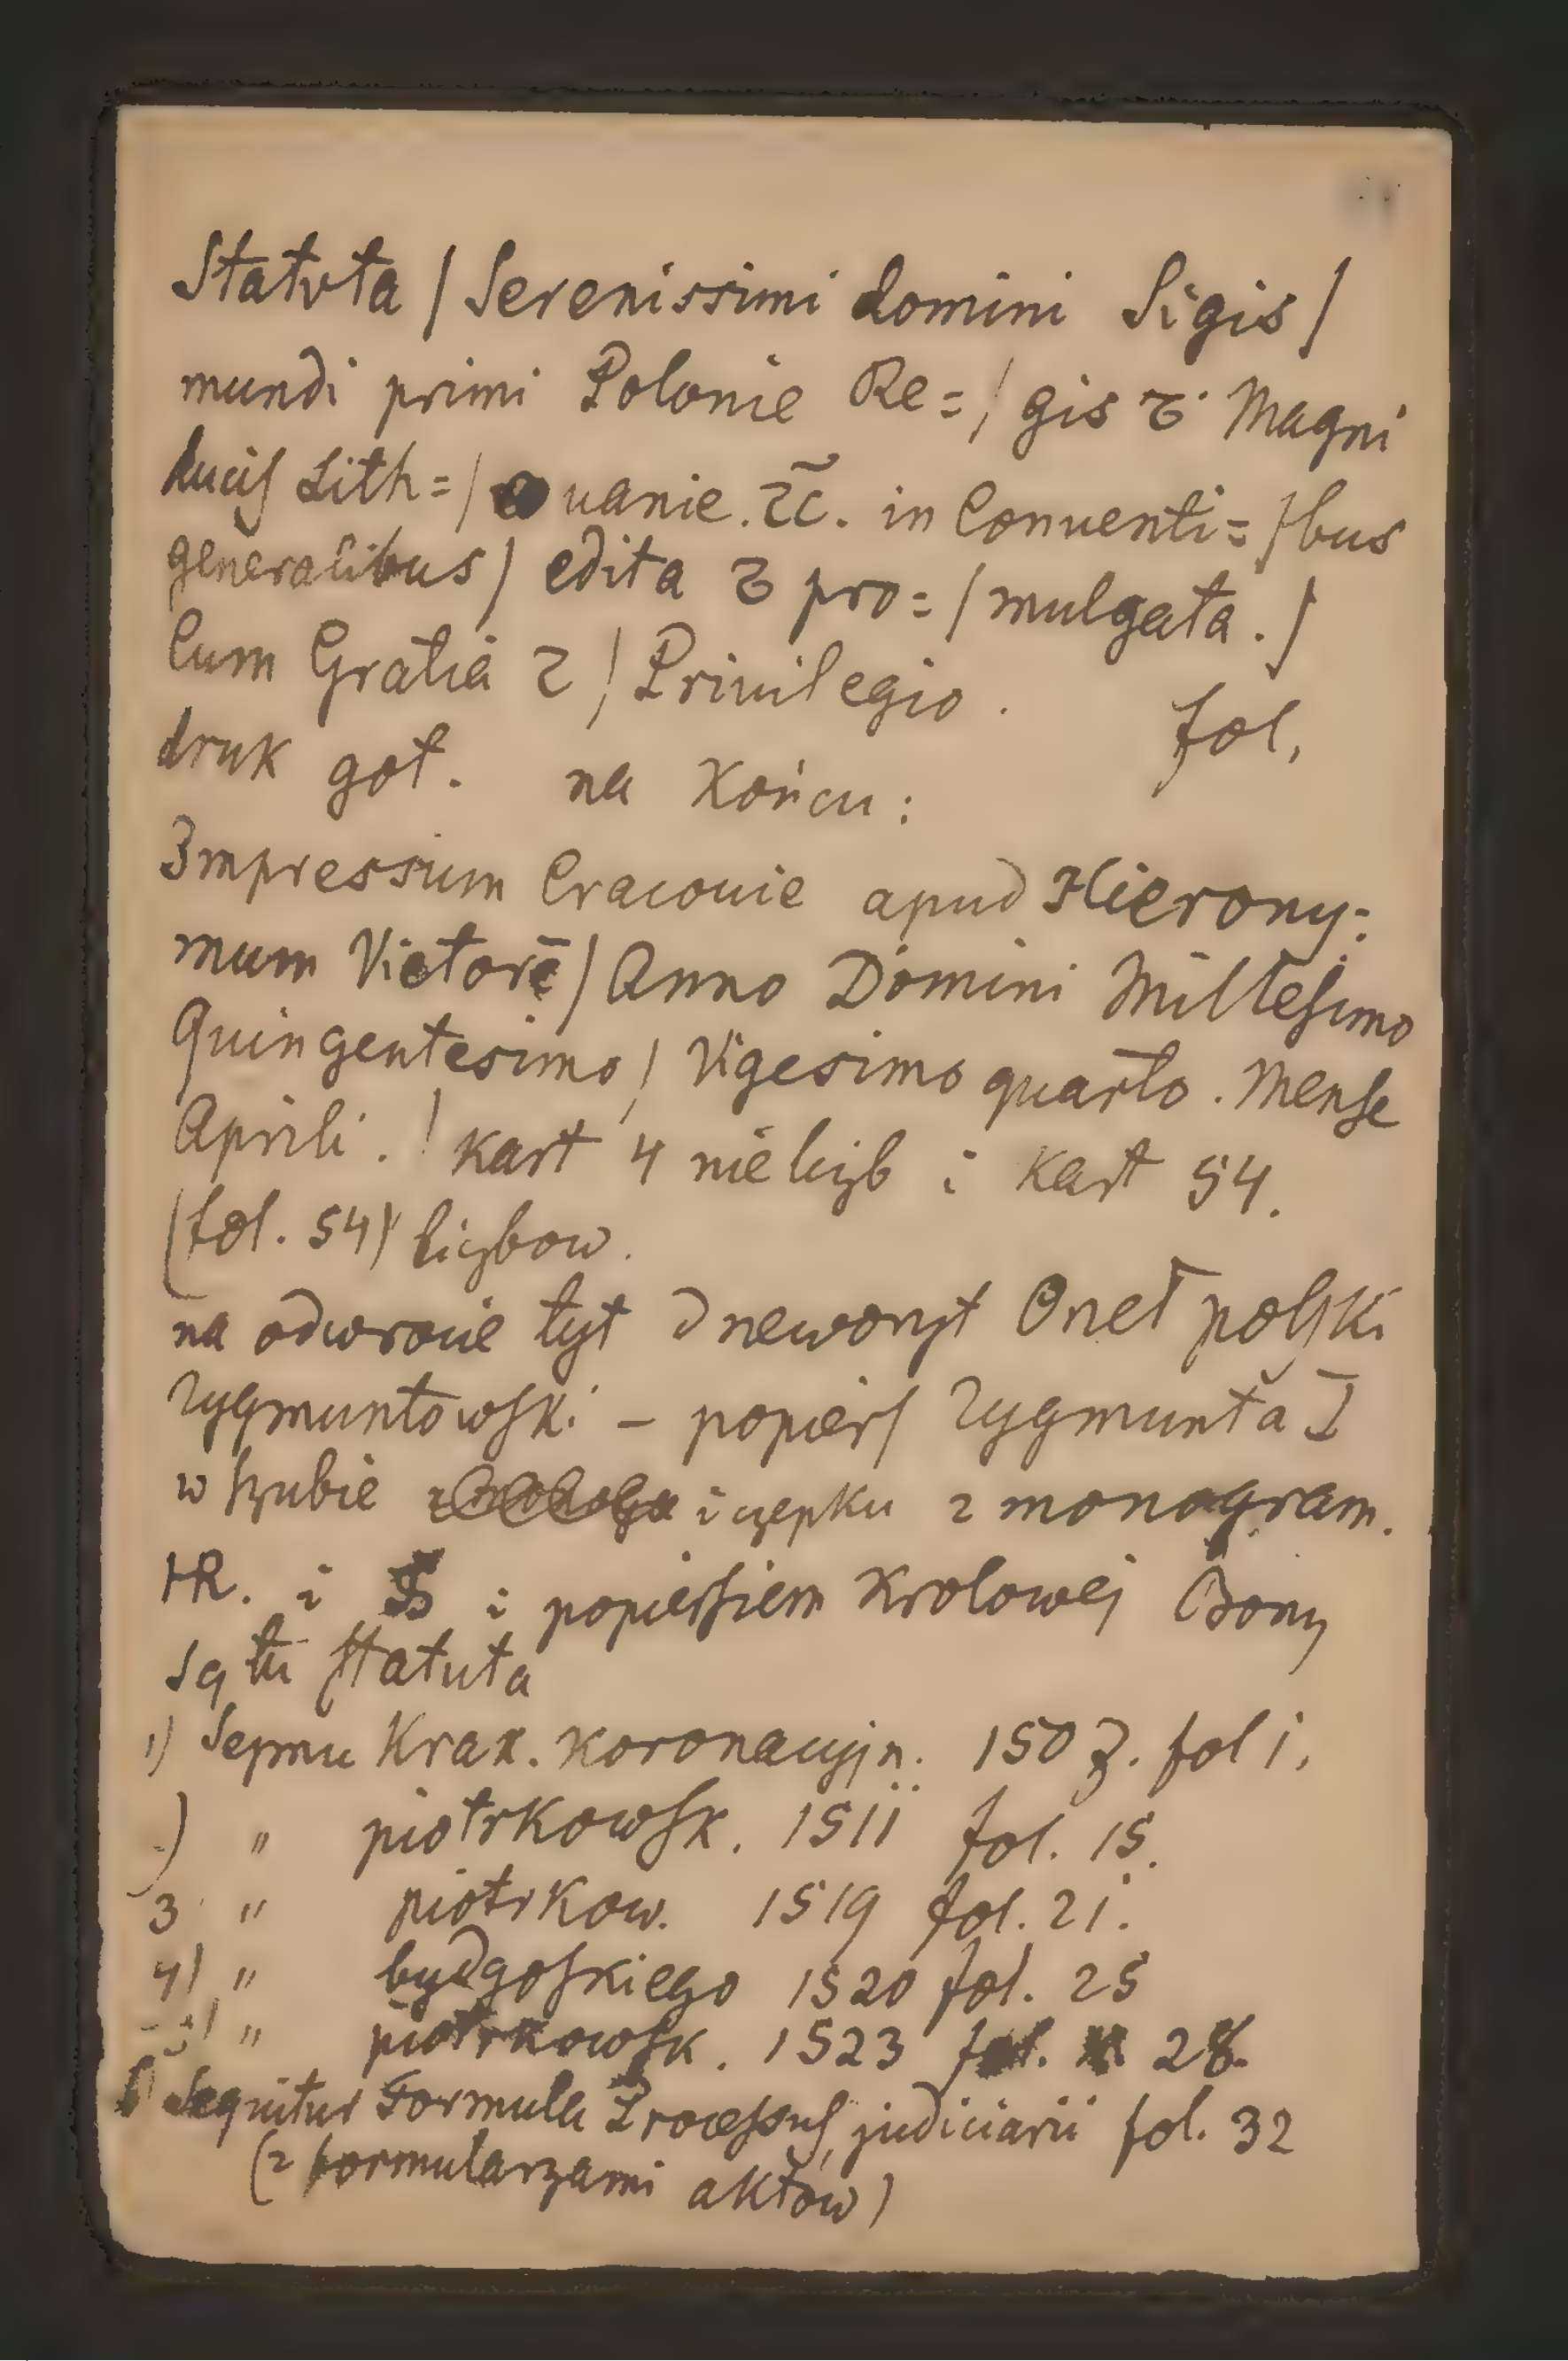 Statvta / Serenissimi domini Sigis /
mundi primi Polonie Re= / gis ⁊ Magni
ducis Lith= / uanie. ⁊c. in Conuenti= / bus
generalibus / edita ⁊ pro= / mulgata. /
Cum Gratia ⁊ / Priuilegio. fol,
druk got. na końcu:
Impressum Cracouie apud Hierony:
mum Vietorē / Anno Domini Millesimo
Quingentesimo / Vigesimo quarto. Mense
Aprili. / kart 4 nieliczb i kart 54.
(fol. 54) liczbow.
na odwrocie tyt drzeworyt Orzeł polski
Zygmuntowski – popiers Zygmunta I
w szubie i czepku z monogram.
HR. i i popiersiem Krolowej Bony
są tu statuta
1) Sejmu Krak. koronacyjn. 1507. fol i.
) " piotrkowsk. 1511 fol. 15.
3 " piotrkow. 1519 fol. 21.
4) " bydgoskiego 1520 fol. 25
5) " piotrkowsk. 1523 fol. 28.
Sequitur Formula Processus judiciarii fol. 32
(z formularzami aktów)